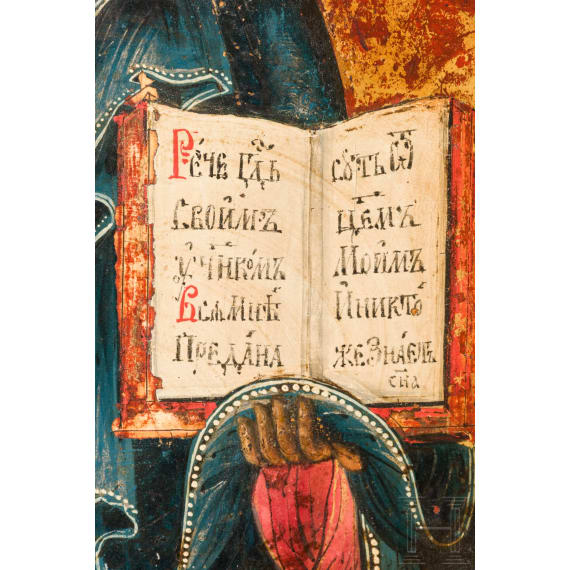 Рече гдь
своимъ
учн҃комъ
Вся мнѣ
предана
суть ѿ
ц҃емъ
моимъ
и никто
же знаетъ
сн҃а